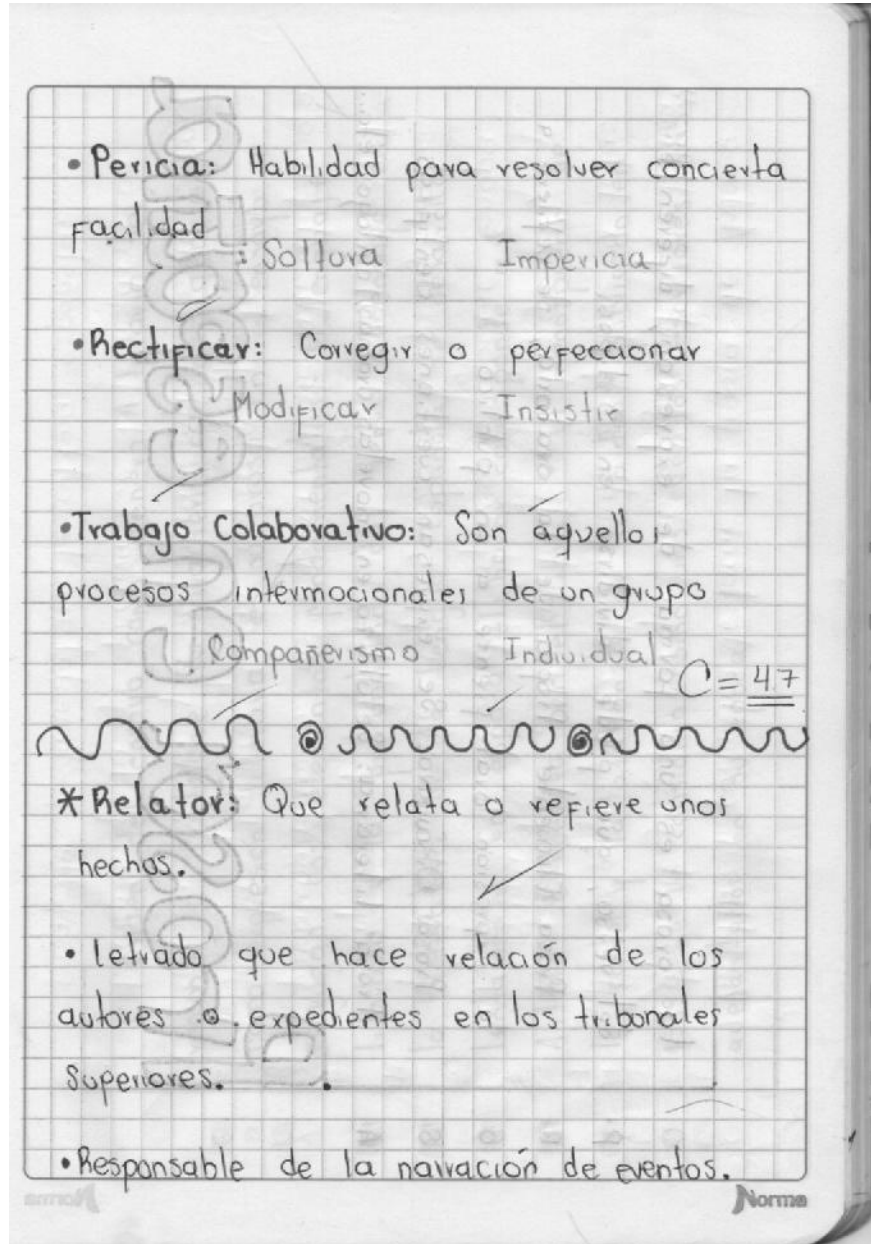 • Pericia: Habilidad para resolver concierta
Facilidad
: Soltura Impericia
• Rectificar: Corregir o perfeccionar
Modificar Insistir
• Trabajo Colaborativo: Son aquellos
procesos intermocionales de un grupo
Compañerismo Individual
C = 47
* Relator: Que relata o refiere unos
hechos.
• letrado que hace relación de los
autores o expedientes en los tribonales
Superiores.
• Responsable de la narración de eventos.
Norma